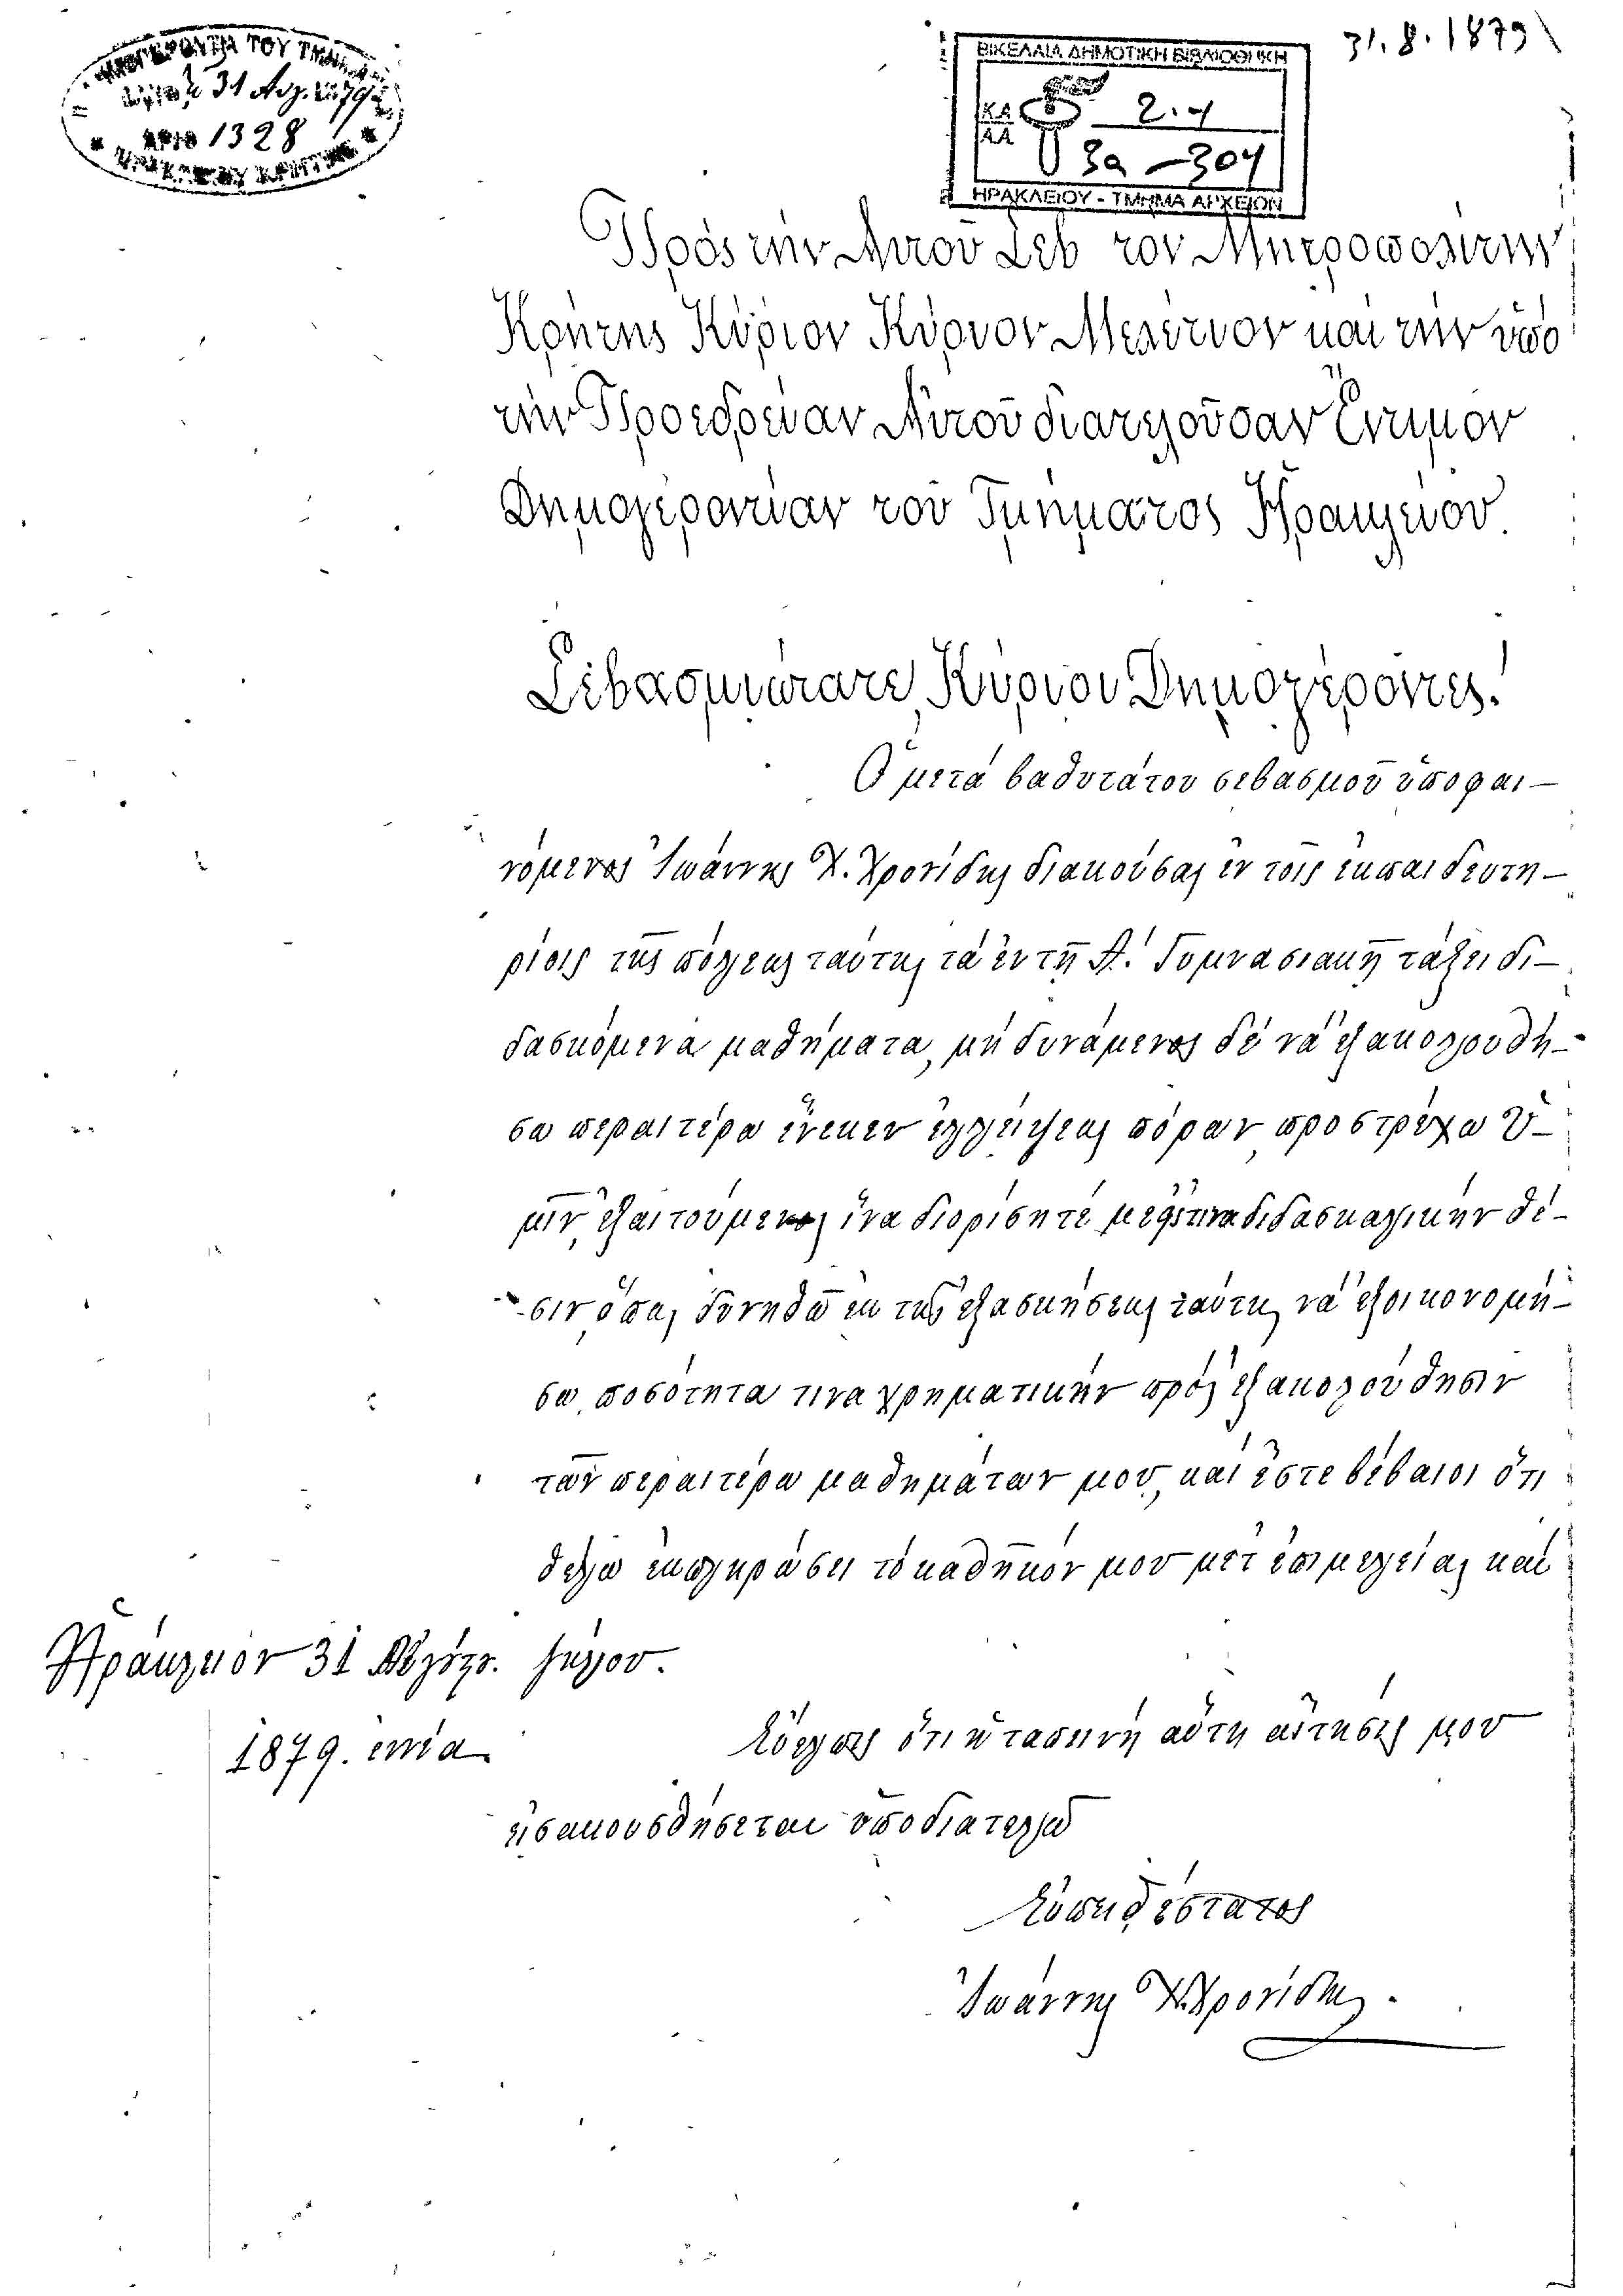 31.8.1879
ΔΗΜΟΓΕΡΟΝΤΙΑ ΤΟΥ ΤΜΗΜΑΤΟΣ
31 Αυγ. 1879
ΑΡΙΘ 1328
ΒΙΚΕΛΑΙΑ ΔΗΜΟΤΙΚΗ ΒΙΒΛΙΟΘΗΚΗ
ΚΑ 2.4
ΑΑ 3α-304
ΗΡΑΚΛΕΙΟΥ - ΤΜΗΜΑ ΑΡΧΕΙΩΝ
Πρός τήν Αυτού Σεβ τον Μητροπολίτην
Κρήτης Κύριον Κύριον Μελέτιον και τήν υπό
τήν Προεδρείαν Αυτού διατελούσαν Έντιμον
Δημογεροντίαν του Τμήματος Ηρακλείου.
Σεβασμιώτατε, Κύριοι Δημογέροντες!
Ὁ μετά βαθυτάτου σεβασμού υποφαι-
νόμενος Ἰωάννης Χ. Χρονίδης διακούσας εν τοις εκπαιδευτη-
ρίοις της πόλεως ταύτης τά εν τη Α΄. Γυμνασιακη τάξει δι-
δασκόμενα μαθήματα, μή δυνάμενος δέ νά εξακολουθή-
σω περαιτέρω ένεκεν ελλείψεως πόρων, προστρέχω Ὑ-
μιν, εξαιτούμενος ίνα διορίσητέ με είς τινα διδασκαλικήν θέ-
σιν, όπως δυνηθώ εκ της εξασκήσεως ταύτης νά εξοικονομή-
σω ποσότητα τινα χρηματικήν πρός εξακολούθησιν
των περαιτέρω μαθημάτων μου, και έστε βέβαιοι ότι
θέλω εκπληρώσει τό καθηκόν μου μετ' επιμελείας και
ζήλου.
Ηράκλειον 31 Αυγούστ.
1879. εννέα
Εύελπις ότι η ταπεινή αύτη αίτησίς μου
εισακουσθήσεται υποδιατελώ
Ευπειθέστατος
Ἰωάννης Χ. Χρονίδης.